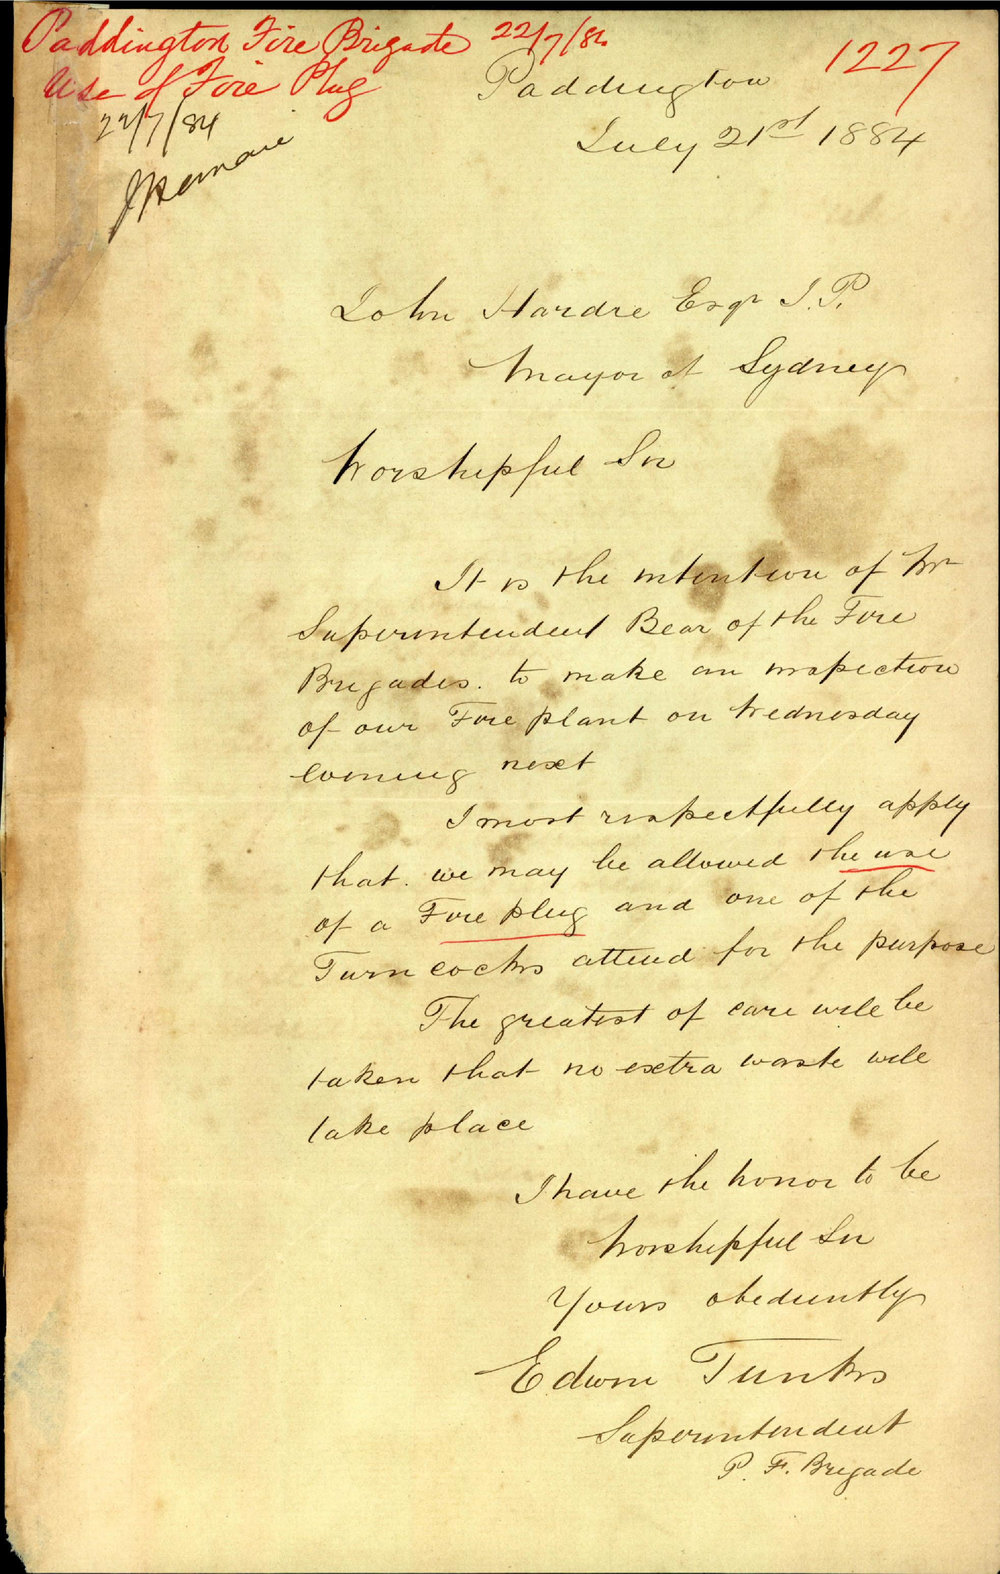 Paddington Fire Brigade 22/7/84
Use of Fire Plug
1227
22/7/84
Paddington
July 21st 1884
John Hardie Esqr J.P.
Mayor of Sydney
Worshipful Sir
It is the intention of Mr
Superintendent Bear of the Fire
Brigades. to make an inspection
of our Fire plant on Wednesday
evening next
I most respectfully apply
that. we may be allowed the use
of a Fire plug and one of the
Turn cocks attend for the purpose
The greatest of care will be
taken that no extra waste will
take place
I have the honor to be
Worshipful Sir
Yours obediently
Edwin Tunks
Superintendent
P. F. Brigade